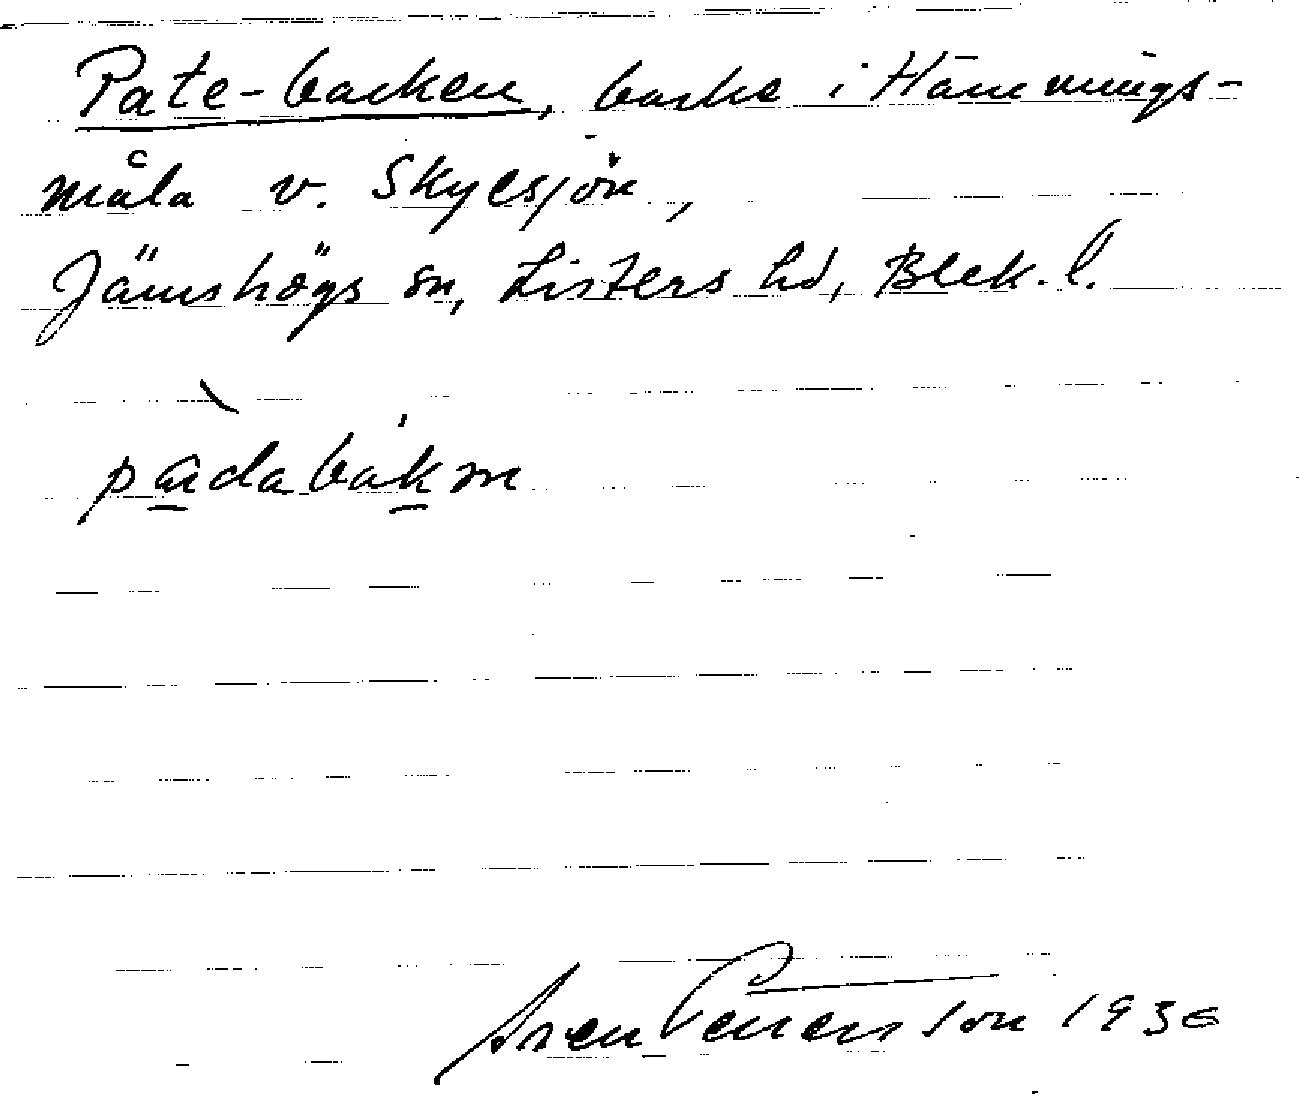 Pate-backen, backe i Hämmings-
måla v. Skyesjön,
Jämshögs sn, Listers hd, Blek. l.
padabakm
Sven Pettersson 1936